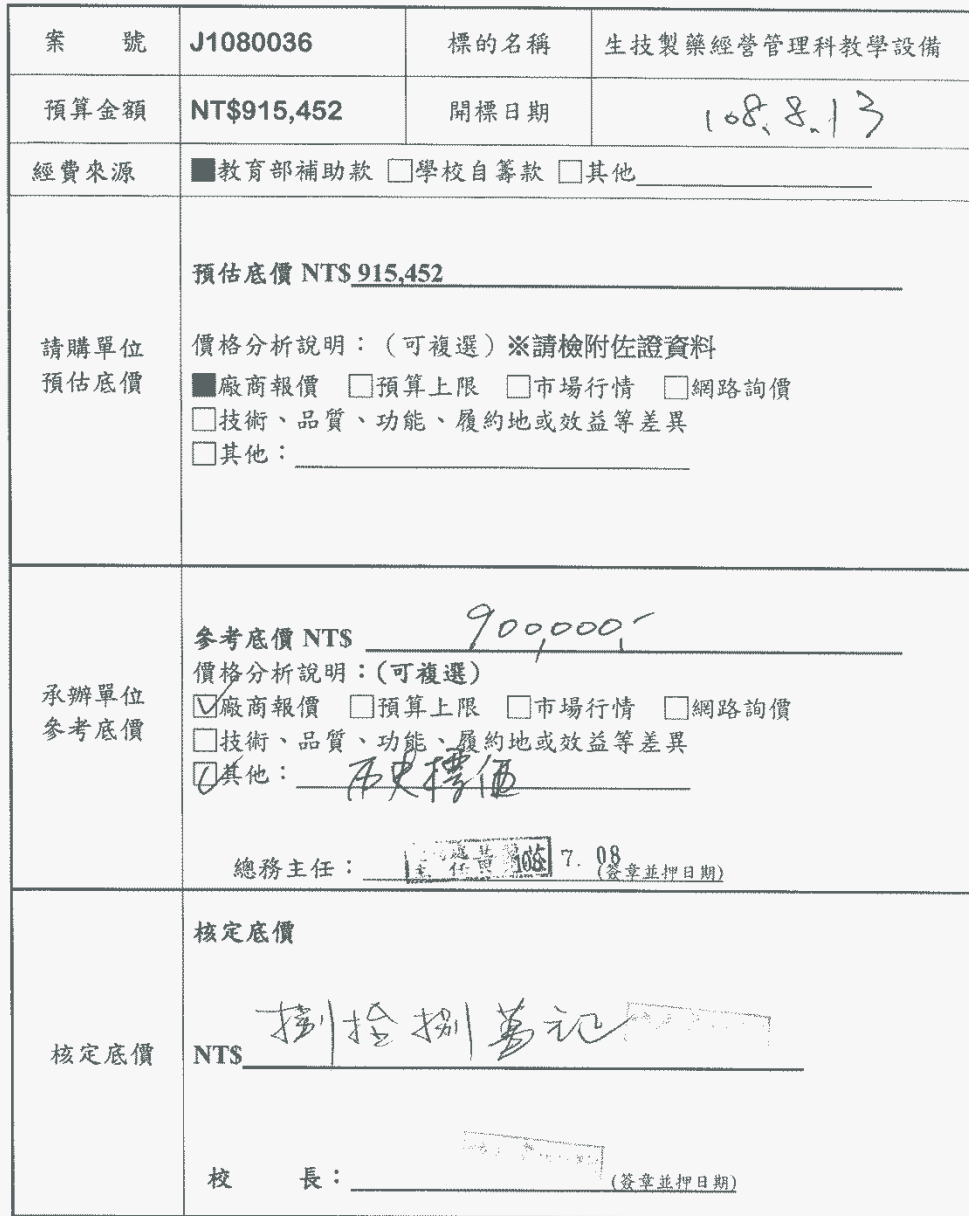 案 號 J1080036 標的名稱 生技製藥經營管理科教學設備
預算金額 NT$915,452 開標日期 108.8.13
經費來源 ■教育部補助款 □學校自籌款 □其他
預估底價 NT$ 915,452
請購單位
預估底價
價格分析說明：（可複選）※請檢附佐證資料
■廠商報價 □預算上限 □市場行情 □網路詢價
□技術、品質、功能、履約地或效益等差異
□其他：
參考底價 NT$ 900,000.-
價格分析說明：(可複選)
承辦單位
參考底價
☑廠商報價 □預算上限 □市場行情 □網路詢價
□技術、品質、功能、履約地或效益等差異
☑其他： 歷史標価
總務主任： 主任 黃 108. 7. 08 (簽章並押日期)
核定底價
核定底價
NT$ 捌拾捌萬元
校 長： (簽章並押日期)